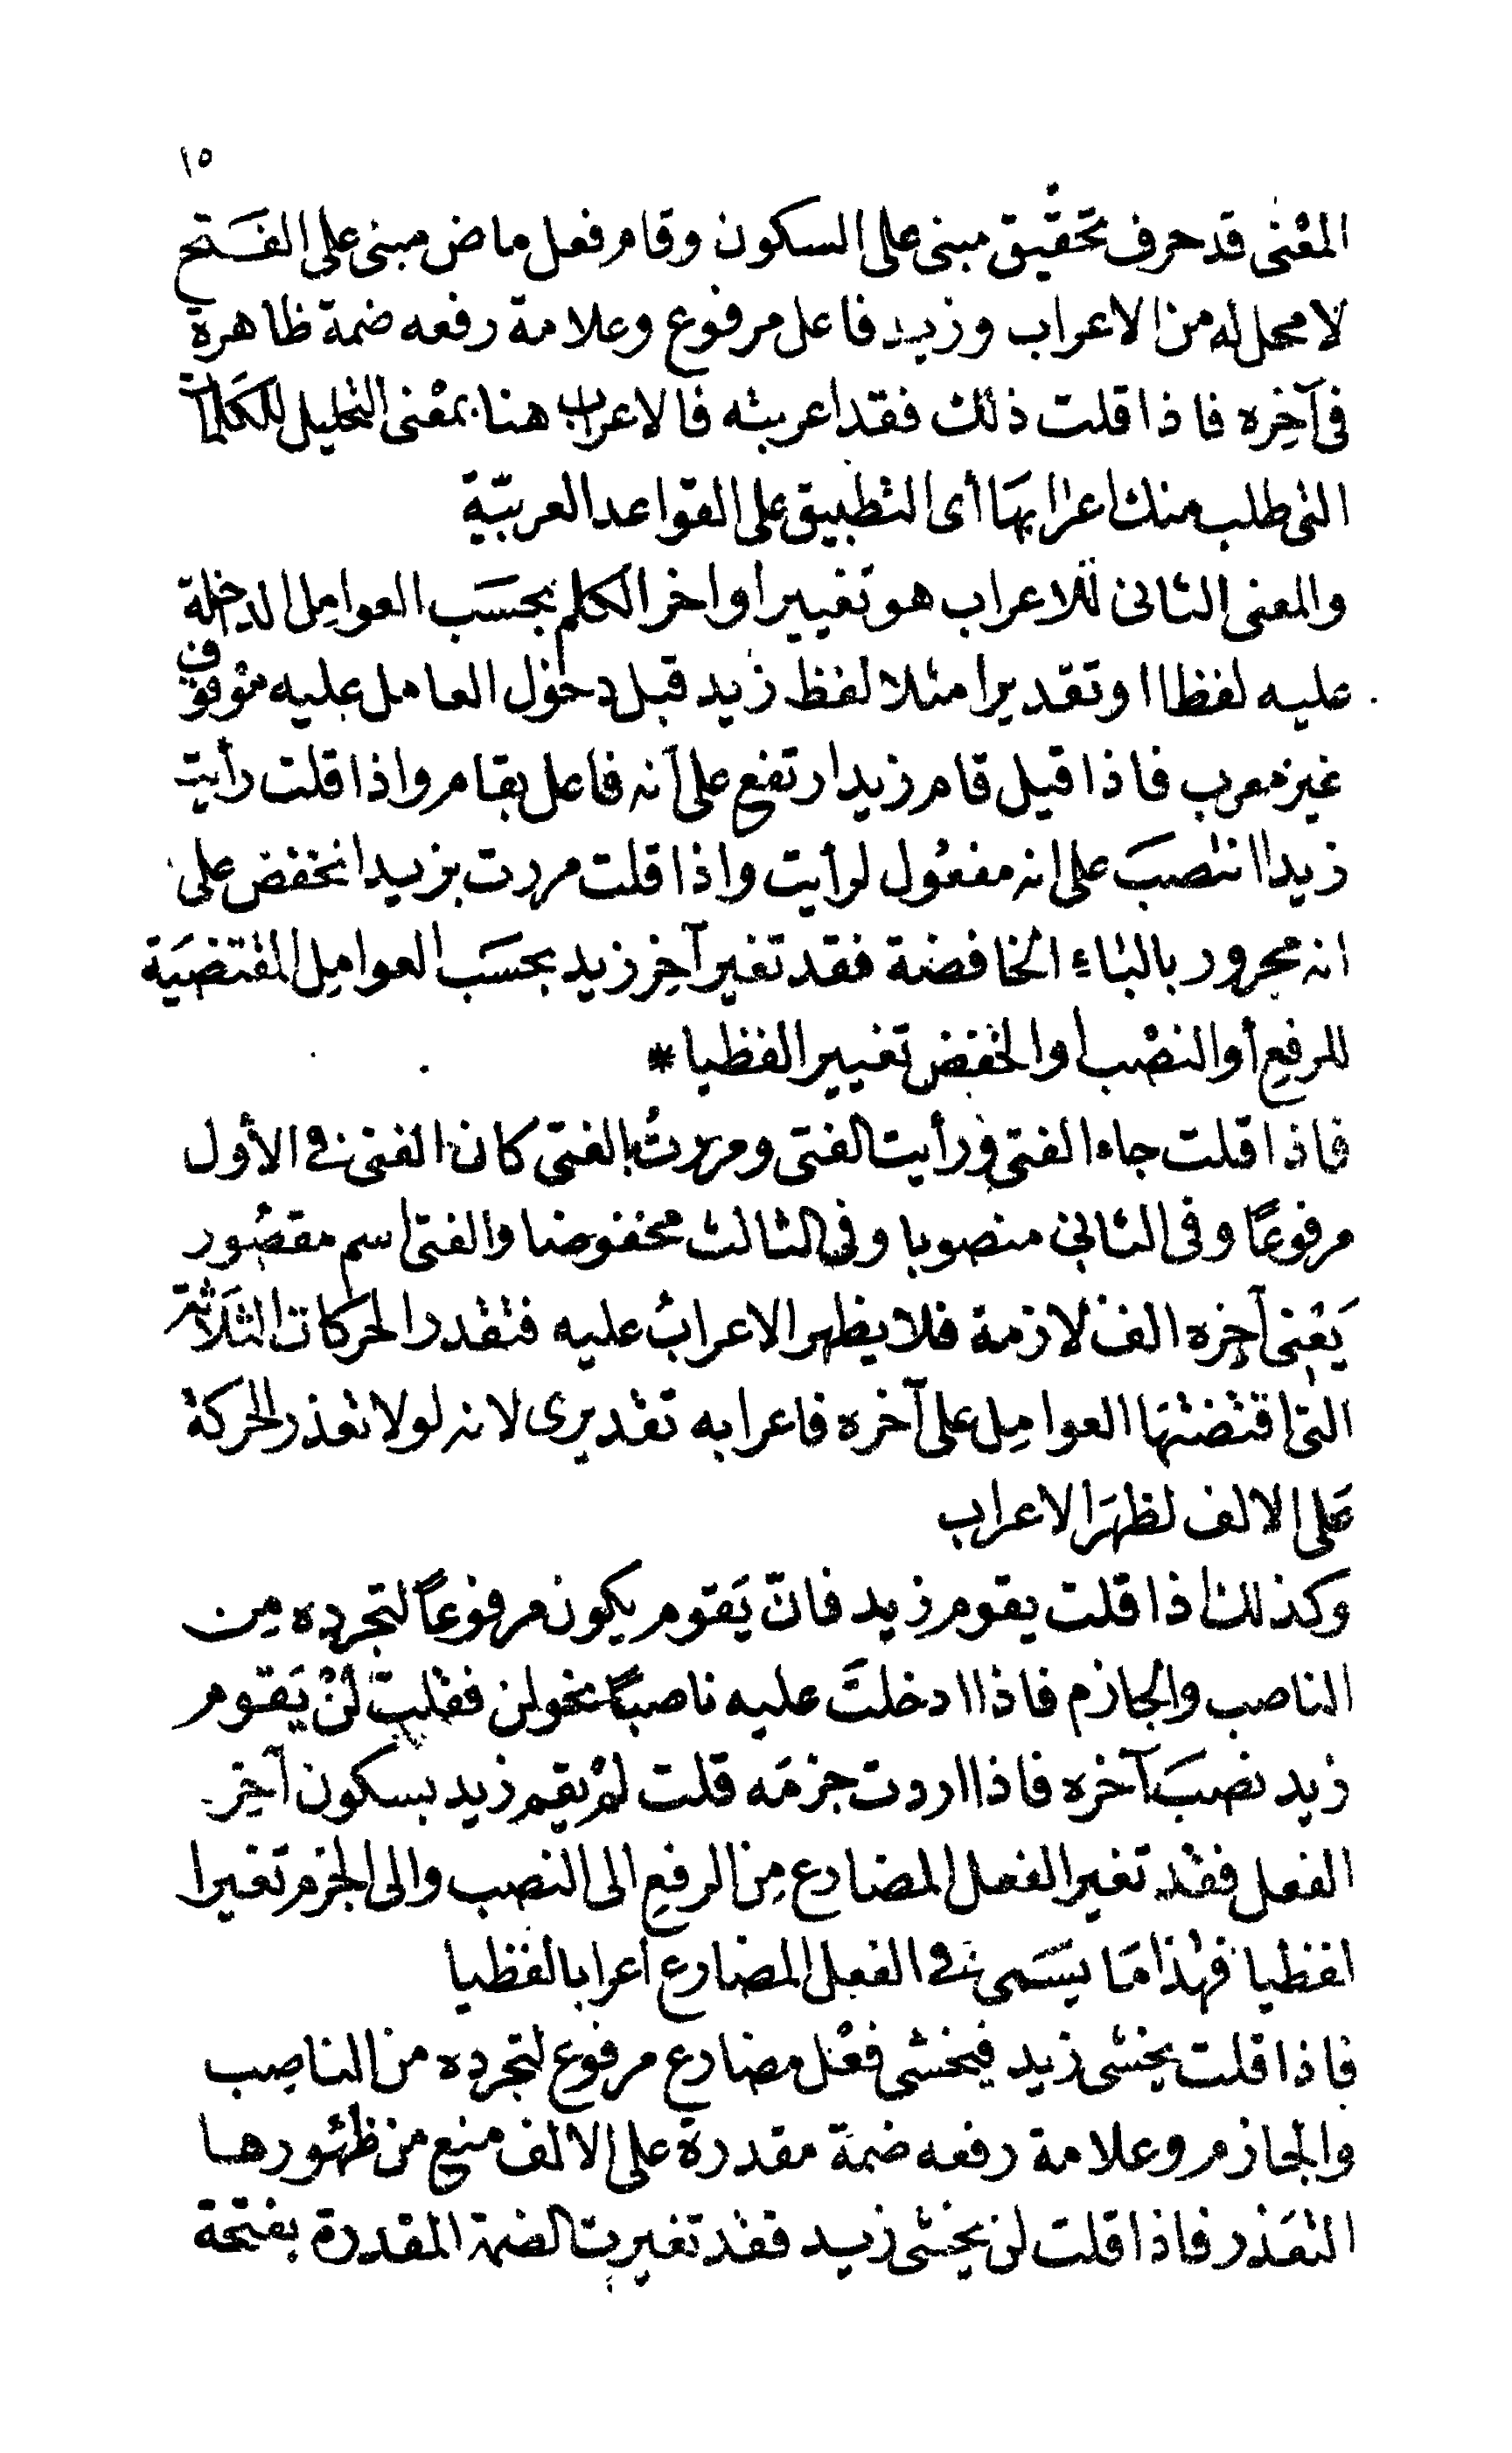 ١٥
المعْنى قد حرف تحقيق مبنى على السكون وقام فعل ماض مبنى على الفَتح
لا محل له من الاعراب وزيد فاعل مرفوع وعلامة رفعه ضمة ظاهرة
فى آخِره فاذا قلت ذلك فقد اعربته فالاعراب هنا بمعْنى التحليل للكَلمات
التى طلب منك اعرابهَا أى التطبيق على القواعد العربيّة
والمعنى الثانى للاعراب هو تغيير اواخر الكلم بحسَب العوامِل الداخلة
عليه لفظا او تقديرا مثلا لفظ زيد قبل دخول العامل عليه موْقوف
غير معرب فاذا قيل قام زيد ارتفع على انه فاعل بقام واذا قلت رأيت
زيدا انتصبَ على انه مفعُول لرأيت واذا قلت مررت بزيد انخفض على
انه مجرور بالباءِ الخافضة فقد تغير آخِر زيد بحسَب العوامِل المقتضيَة
للرفعِ أو النصْب او الخفض تغييرا لفظيا *
فاذا قلت جاء الفتى ورأيت الفتى ومررتُ بالفتى كان الفتى فى الأول
مرفوعًا وفى الثانى منصوبا وفى الثالث مخفوضا والفتى اسم مقصُور
يَعْنى آخِره الف لازمة فلا يظهر الاعرابُ عليه فتقدر الحركات الثلَاثة
التى اقتضتهَا العوامِل على آخره فاعرابه تقديرى لانه لولا تعذر الحركة
عَلى الالف لظهَر الاعراب
وكذلك اذا قلت يقوم زيد فانّ يَقوم يكون مرفوعاً لتجرده مِن
الناصب والجازم فاذا ادخلتَ عليه ناصبًا نحو لن فقلت لنْ يَقوم
زيد نصبَ آخره فاذا اردت جزمَه قلت لمْ يقم زيد بسكون آخِر
الفعل فقد تغير الفعل المضارع مِن الرفعِ الى النصب والى الجزم تغيرا
لفظيا فهذا مَا يسَمى فى الفعل المضارع اعرابا لفظيا
فاذا قلت يخشى زيد فيخشى فعْل مضارع مرفوع لتجرده من الناصِب
والجازم وعلامة رفعه ضمة مقدرة على الالف منع من ظهُورها
التعَذر فاذا قلت لن يخشى زيد فقد تغيرت الضمة المقدرة بفتحة